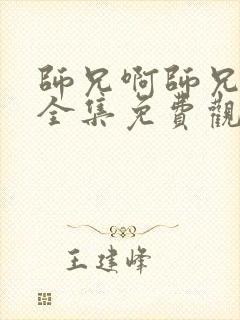 師兄啊師兄
全集免費觀
王建峰